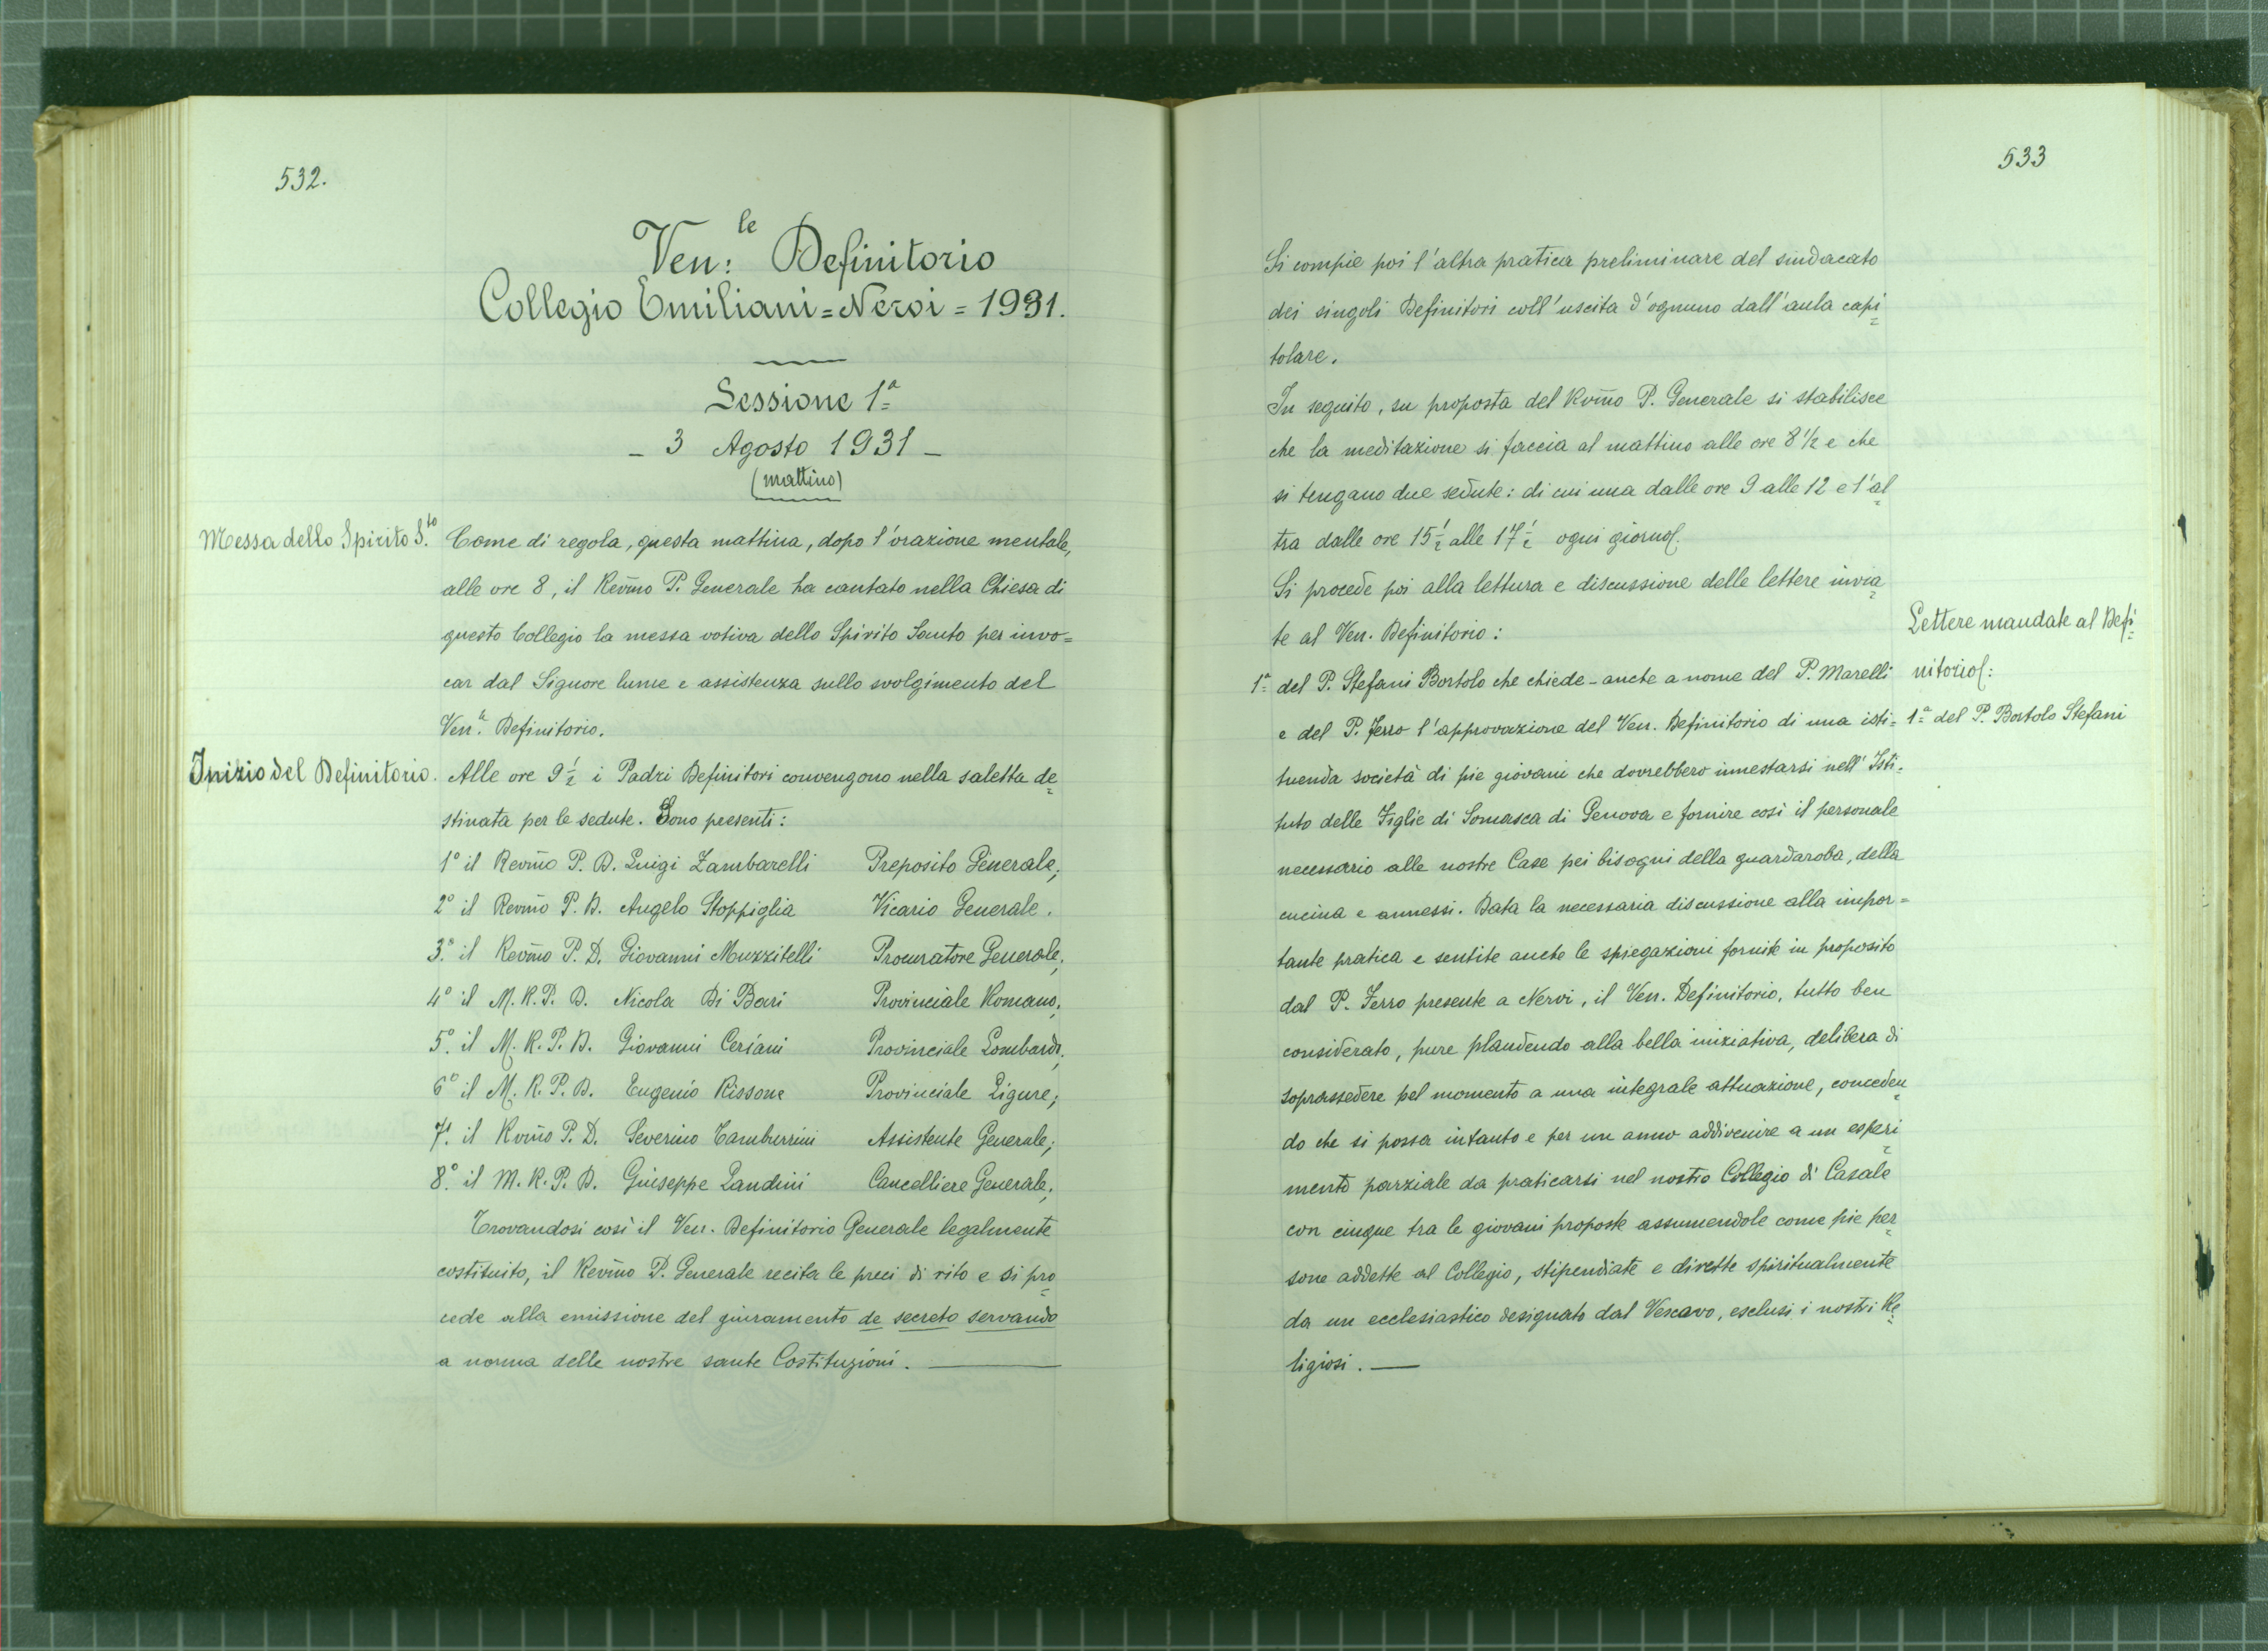 532.
Ven:le Definitorio
Collegio Emiliani=Nervi=1931.
Sessione 1ª
- 3 Agosto 1931 -
(mattino)
Messa dello Spirito S.to
Come di regola, questa mattina, dopo l'orazione mentale,
alle ore 8, il Rev̄mo P. Generale ha cantato nella Chiesa di
questo Collegio la messa votiva dello Spirito Santo per invo=
car dal Signore lume e assistenza sullo svolgimento del
Ven.le Definitorio.
Inizio del Definitorio.
Alle ore 9 1/2 i Padri Definitori convengono nella saletta de=
stinata per le sedute. Sono presenti:
1º il Rev̄mo P. D. Luigi Zambarelli Preposito Generale;
2º il Rev̄mo P. D. Angelo Stoppiglia Vicario Generale.
3.º il Rev̄mo P. D. Giovanni Muzzitelli Procuratore Generale;
4º il M. R. P. D. Nicola Di Bari Provinciale Romano;
5º. il M. R. P. D. Giovanni Ceriani Provinciale Lombardo;
6º il M. R. P. D. Eugenio Rissone Provinciale Ligure;
7º. il Rv̄mo P. D. Severino Tamburrini Assistente Generale;
8.º il M. R. P. D. Giuseppe Landini Cancelliere Generale;
Trovandosi così il Ven. Definitorio Generale legalmente
costituito, il Rev̄mo P. Generale recita le preci di rito e si pro=
cede alla emissione del giuramento de secreto servando
a norma delle nostre sante Costituzioni.
533
Si compie poi l'altra pratica preliminare del sindacato
dei singoli Definitori coll'uscita d'ognuno dall'aula capi=
tolare.
In seguito, su proposta del Rv̄mo P. Generale si stabilisce
che la meditazione si faccia al mattino alle ore 8 1/2 e che
si tengano due sedute: di cui una dalle ore 9 alle 12 e l'al=
tra dalle ore 15 1/2 alle 17 1/2 ogni giorno.
Si procede poi alla lettura e discussione delle lettere invia=
te al Ven. Definitorio:
Lettere mandate al Defi=
nitorio:
1ª del P. Bortolo Stefani
1ª del P. Stefani Bortolo che chiede - anche a nome del P. Marelli
e del P. Ferro l'approvazione del Ven. Definitorio di una isti=
tuenda società di pie giovani che dovrebbero innestarsi nell'Isti=
tuto delle Figlie di Somasca di Genova e fornire così il personale
necessario alle nostre Case pei bisogni della guardaroba, della
cucina e annessi. Data la necessaria discussione alla impor=
tante pratica e sentite anche le spiegazioni fornite in proposito
dal P. Ferro presente a Nervi, il Ven. Definitorio, tutto ben
considerato, pure plaudendo alla bella iniziativa, delibera di
soprassedere pel momento a una integrale attuazione, conceden=
do che si possa intanto e per un anno addivenire a un esperi=
mento parziale da praticarsi nel nostro Collegio di Casale
con cinque tra le giovani proposte assumendole come pie per=
sone addette al Collegio, stipendiate e dirette spiritualmente
da un ecclesiastico designato dal Vescovo, esclusi i nostri Re=
ligiosi.